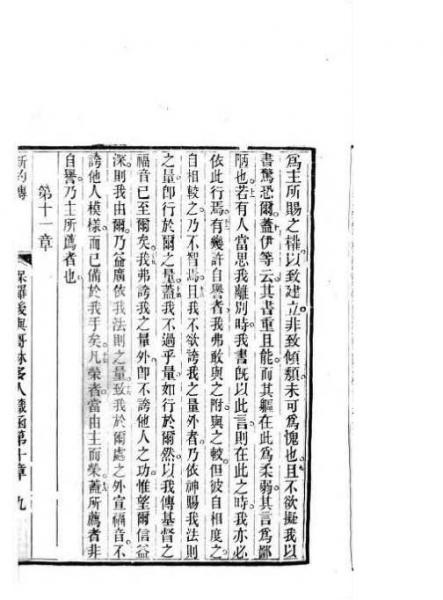 為主所賜之權以致建立非致傾頹未可為愧也且不欲擬我以
書驚恐爾蓋伊等云其書重且能而其軀在此為柔弱其言為鄙
陋也若有人當思我離別時我書旣以此言則在此之時我亦必
依此行焉有幾許自譽者我弗敢與之附與之較但彼自相度之
自相較之乃不智焉且我不欲誇我之量外者乃依神賜我法則
之量卽行於爾之量蓋我不過乎量如行於爾然以我傳基督之
福音已至爾矣我弗誇我之量外卽不誇他人之功惟望爾信益
深則我由爾乃益廣依我法則之量致我於爾處之外宣福音不
誇他人模樣而已備於我手矣凡榮者當由主而榮蓋所薦者非
自譽乃主所薦者也
第十一章
新約傳 保羅後與哥林多人 函第十章 九